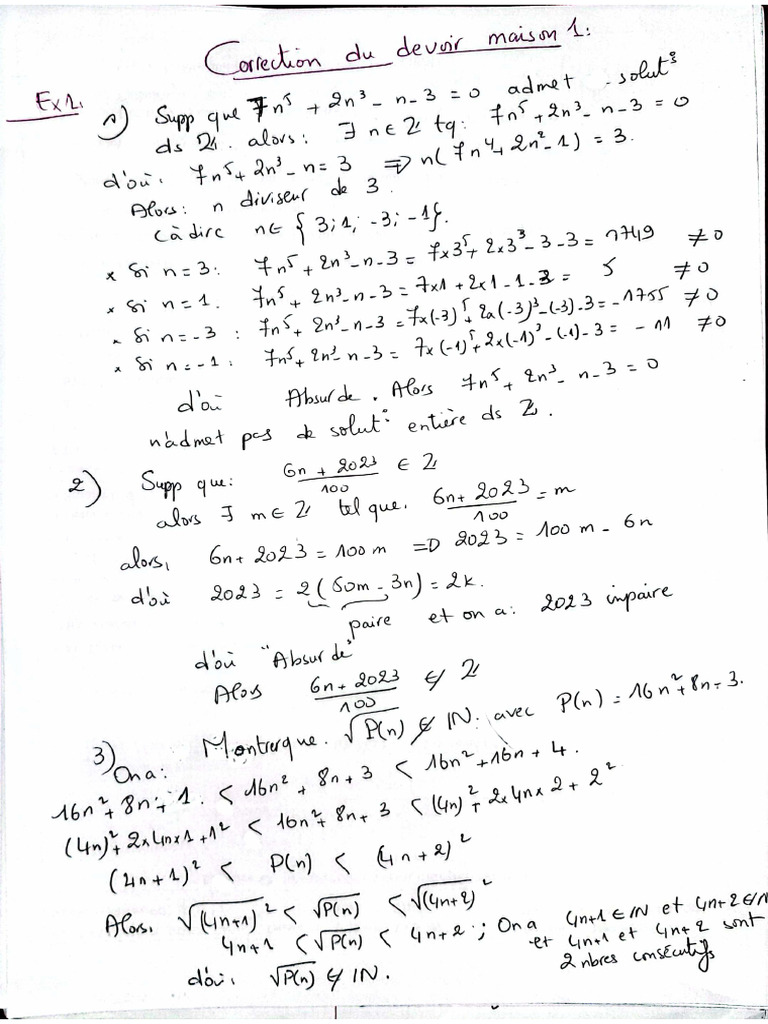 Correction du devoir maison 1:
Ex1.
1) Supp que 7n⁵ + 2n³ - n - 3 = 0 admet solut°
ds ℤ. alors: ∃ n ∈ ℤ tq: 7n⁵ + 2n³ - n - 3 = 0
d'où: 7n⁵ + 2n³ - n = 3 ⇒ n(7n⁴ + 2n² - 1) = 3.
Alors: n diviseur de 3.
càdire n ∈ {3; 1; -3; -1}.
* Si n = 3: 7n⁵ + 2n³ - n - 3 = 7×3⁵ + 2×3³ - 3 - 3 = 1749 ≠ 0
* Si n = 1. 7n⁵ + 2n³ - n - 3 = 7×1 + 2×1 - 1 - 3 = 5 ≠ 0
* Si n = -3 : 7n⁵ + 2n³ - n - 3 = 7×(-3)⁵ + 2×(-3)³ - (-3) - 3 = -1755 ≠ 0
* Si n = -1 : 7n⁵ + 2n³ - n - 3 = 7×(-1)⁵ + 2×(-1)³ - (-1) - 3 = -11 ≠ 0
d'où Absurde. Alors 7n⁵ + 2n³ - n - 3 = 0
n'admet pas de solut° entière ds ℤ.
2) Supp que: (6n + 2023)/100 ∈ ℤ
alors ∃ m ∈ ℤ tel que. (6n + 2023)/100 = m
alors, 6n + 2023 = 100m ⇒ 2023 = 100m - 6n
d'où 2023 = 2(50m - 3n) = 2k.
paire et on a: 2023 impaire
d'où "Absurde"
Alors (6n + 2023)/100 ∉ ℤ
3) Montrer que. √P(n) ∉ ℕ. avec P(n) = 16n² + 8n + 3.
On a:
16n² + 8n + 1. < 16n² + 8n + 3 < 16n² + 16n + 4.
(4n)² + 2×4n×1 + 1² < 16n² + 8n + 3 < (4n)² + 2×4n×2 + 2²
(4n + 1)² < P(n) < (4n + 2)²
Alors. √(4n+1)² < √P(n) < √(4n+2)²
4n+1 < √P(n) < 4n+2 ; On a 4n+1 ∈ ℕ et 4n+2 ∈ ℕ
et 4n+1 et 4n+2 sont
2 nbres consécutifs
d'où: √P(n) ∉ ℕ.